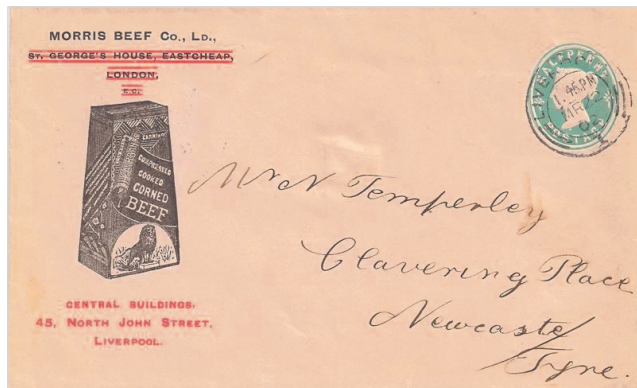 MORRIS BEEF Co., LD.,
ST. GEORGE'S HOUSE, EASTCHEAP,
LONDON,
E.C.
COMPRESSED
COOKED
CORNED
BEEF
CENTRAL BUILDINGS,
45, NORTH JOHN STREET,
LIVERPOOL.
HALFPENNY
POSTAGE
LIVERPOOL
1.45PM
Mr N Temperley
Clavering Place
Newcastle/
Tyne.